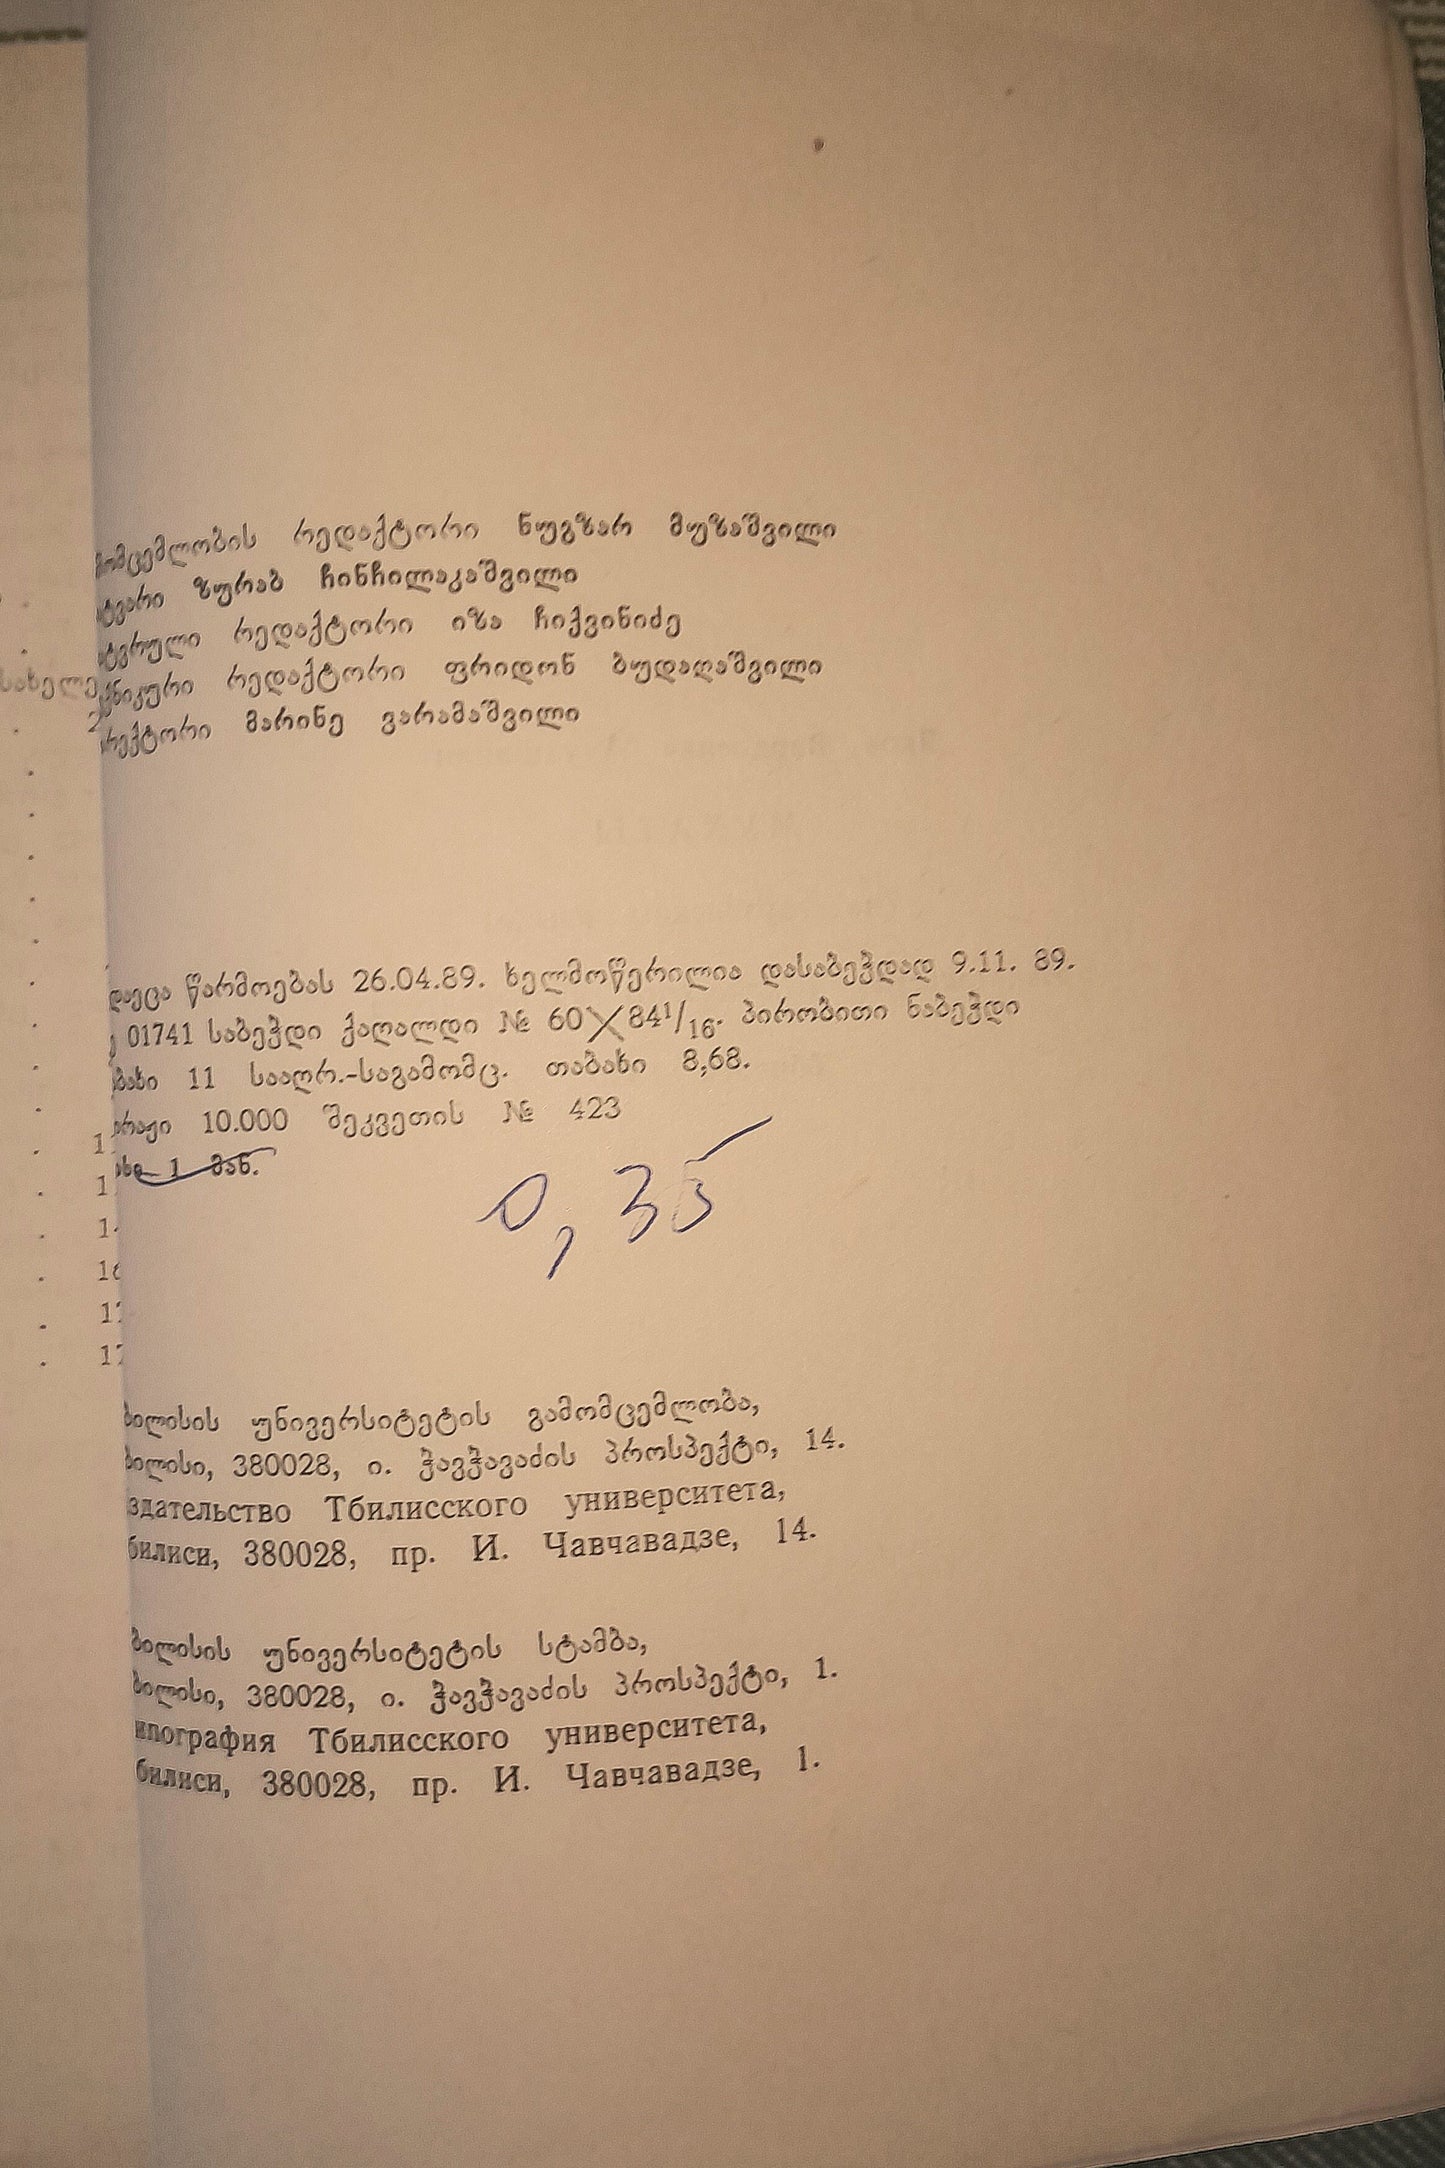 რედაქტორი ნუგზარ მუზაშვილი
ზურაბ ჩინჩილაკაშვილი
რედაქტორი იზა ჩიქვინიძე
რედაქტორი ფრიდონ ბუდაღაშვილი
მარინე ვარამაშვილი
წარმოებას 26.04.89. ხელმოწერილია დასაბეჭდად 9.11. 89.
01741 საბეჭდი ქაღალდი № 60×84 1/16. პირობითი ნაბეჭდი
11 სააღრ.-საგამომც. თაბახი 8,68.
10.000 შეკვეთის № 423
1 მან.
0,35
ბილისის უნივერსიტეტის გამომცემლობა,
ბილისი, 380028, ი. ჭავჭავაძის პროსპექტი, 14.
здательство Тбилисского университета,
билиси, 380028, пр. И. Чавчавадзе, 14.
ბილისის უნივერსიტეტის სტამბა,
ბილისი, 380028, ი. ჭავჭავაძის პროსპექტი, 1.
ипография Тбилисского университета,
билиси, 380028, пр. И. Чавчавадзе, 1.